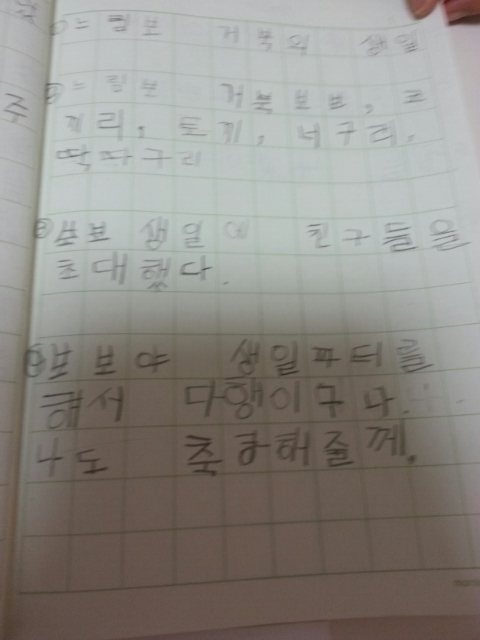 ①느림보 거북의 생일
②느림보 거북보보, 코
끼리, 토끼, 너구리,
딱따구리
③보보 생일에 친구들을
초대했다.
④보보야 생일파티를
해서 다행이구나.
나도 축하해줄께.
주